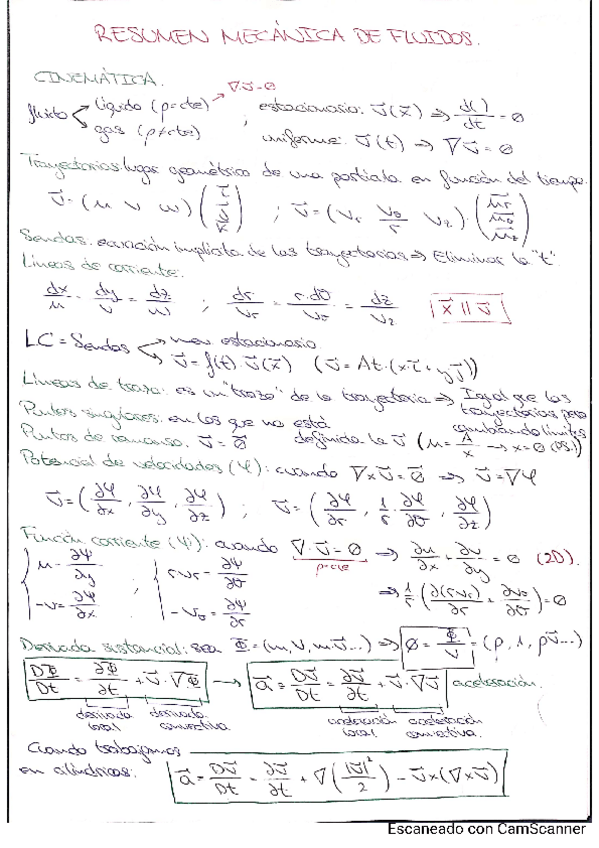 RESUMEN MECÁNICA DE FLUIDOS.
CINEMÁTICA.
∇·v⃗=0
fluido < líquido (ρ=cte) ; estacionario: v⃗(x⃗) ⇒ d()/dt = 0
gas (ρ≠cte) uniforme: v⃗(t) ⇒ ∇v⃗ = 0
Trayectorias: lugar geométrico de una partícula en función del tiempo.
v⃗ = (u v w)
Sendas: ecuación implícita de las trayectorias ⇒ Eliminar la "t".
Líneas de corriente:
dx/u = dy/v = dz/w ; dr/vr = r·dθ/vθ = dz/vz | x⃗ || v⃗
LC = Sendas < mov. estacionario
v⃗ = f(t)·v⃗(x⃗) (v⃗ = At·(xi⃗ + yj⃗))
Líneas de traza: es un "trozo" de la trayectoria ⇒ Igual que las trayectorias pero cambiando límites
Puntos singulares: en los que no está definida la v⃗ (u = A/x → x=0 (P.S.))
Puntos de remanso: v⃗ = 0⃗
Potencial de velocidades (φ): cuando ∇×v⃗ = 0⃗ ⇒ v⃗ = ∇φ
v⃗ = (∂φ/∂x, ∂φ/∂y, ∂φ/∂z) ; v⃗ = (∂φ/∂r, 1/r·∂φ/∂θ, ∂φ/∂z)
Función corriente (Ψ): cuando ∇·v⃗ = 0 ⇒ ∂u/∂x + ∂v/∂y = 0 (2D).
ρ=cte
u = ∂Ψ/∂y ; r·vr = ∂Ψ/∂θ
-v = ∂Ψ/∂x -vθ = ∂Ψ/∂r ⇒ 1/r (∂(r·vr)/∂r + ∂vθ/∂θ) = 0
Derivada sustancial: sea Φ = (m, V, m·v⃗...) ⇒ ϕ = Φ/V = (ρ, 1, ρv⃗...)
DΦ/Dt = ∂Φ/∂t + v⃗·∇Φ → a⃗ = Dv⃗/Dt = ∂v⃗/∂t + v⃗·∇v⃗ aceleración.
derivada local derivada convectiva aceleración local aceleración convectiva
Cuando trabajamos
en cilíndricas: a⃗ = Dv⃗/Dt = ∂v⃗/∂t + ∇(|v⃗|²/2) - v⃗×(∇×v⃗)
Escaneado con CamScanner